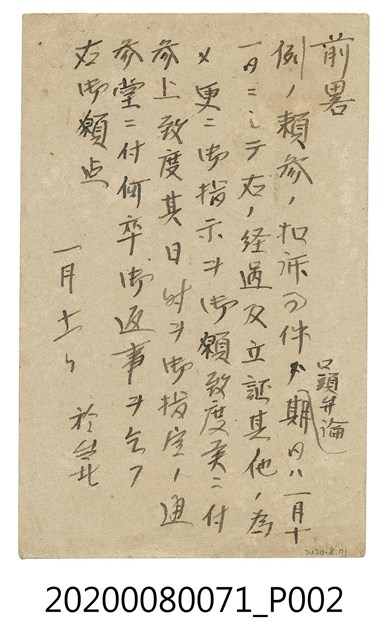 前畧
例ノ頼参ノ扣訴ノ件
口頭弁論
期日ハ一月十
一日ニシテ右ノ経過及立証其他ノ為
メ更ニ御指示ヲ御願致度 ニ付
参上致度其日時ヲ御指定ノ通
参堂ニ付何卒御返事ヲ乞フ
右御願
一月十一日 於台北
2020-8.71
20200080071_P002